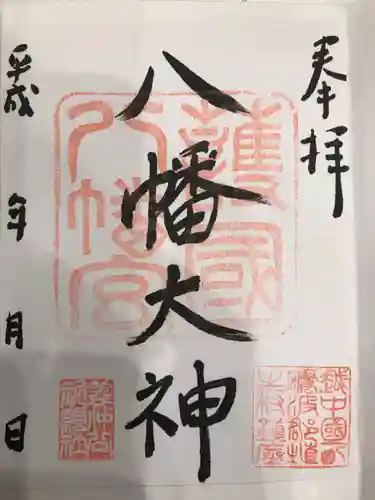 奉拝
八幡大神
護國
八幡宮
平成 年 月 日
越中國